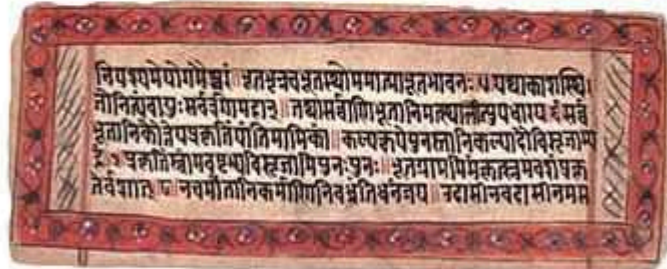 निपश्यमेयोगमैश्वरं ॥ भूतभृन्नचभूतस्थोममात्माभूतभावनः ५ यथाकाशस्थि
तोनित्यंवायुः सर्वत्रगोमहान् ॥ तथासर्वाणिभूतानिमत्स्थानीत्युपधारय ६ सर्व
भूतानिकौंतेयप्रकृतिंयांतिमामिकां ॥ कल्पक्षयेपुनस्तानिकल्पादौविसृजाम्य
हं ७ प्रकृतिंस्वामवष्टभ्यविसृजामिपुनः पुनः ॥ भूतग्राममिमंकृत्स्नमवशंप्रकृ
तेर्वशात् ८ नचमांतानिकर्माणिनिबध्नंतिधनंजय ॥ उदासीनवदासीनमस